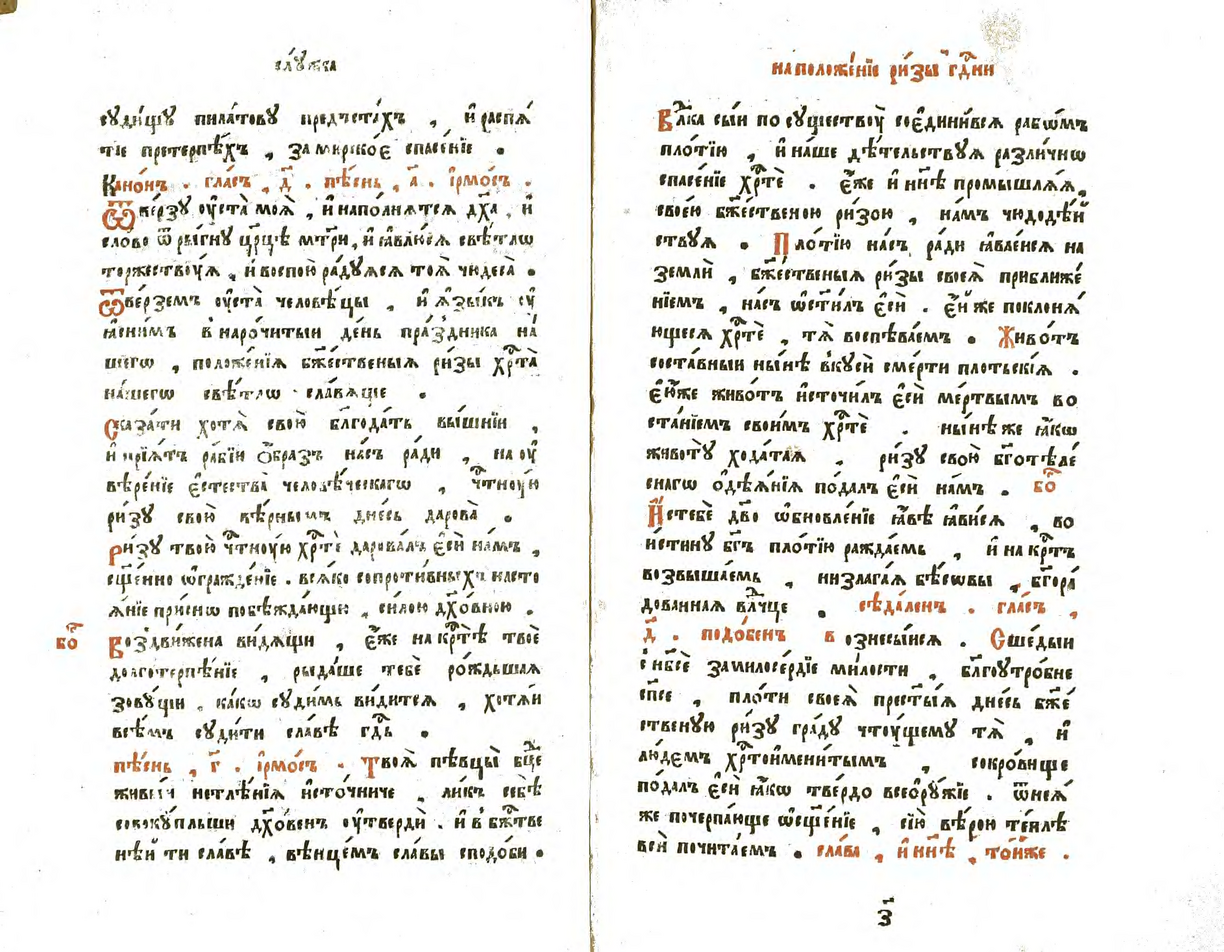 слꙋ́жба
сꙋди́щꙋ пила́товꙋ предъста́хъ , и҆ распѧ́
тїе претерпѣ́хъ , за мирскоѐ спасе́нїе .
Кано́нъ . гла́съ , д҃ . пѣ́снь , а҃ . і҆рмо́съ .
Ѿве́рзꙋ оу҆ста̀ моѧ̀ , и҆ напо́лнѧтсѧ дх҃а , и҆
сло́во ѿры́гнꙋ цр҃цѣ мт҃ри , и҆ ꙗ҆влю́сѧ свѣ́тлѡ
торжествꙋ́ѧ , и҆ воспою̀ ра́дꙋѧсѧ тоѧ̀ чюдеса̀ .
Ѿве́рземъ оу҆ста̀ человѣ́цы , и҆ ꙗ҆зы́къ оу҆
ꙗ҆сни́мъ в нарочи́тыи де́нь пра́здника на́
шегѡ , положе́нїѧ бж҃е́ственыѧ ри́зы хрⷭ҇та̀
на́шегѡ свѣ́тлѡ сла́вѧще .
Сказа́ти хотѧ̀ свою̀ блг҃ода́ть вы́шнїи ,
и҆ прїѧ́тъ ра́бїи ѻ҆́бразъ на́съ ра́ди , на оу҆
вѣре́нїе є҆стества̀ человѣ́ческагѡ , чⷭ҇тнꙋ́ю
ри́зꙋ свою̀ вѣ́рнымъ дне́сь дарова̀ .
Ри́зꙋ твою̀ чⷭ҇тнꙋ́ю хрⷭ҇тѐ дарова́лъ є҆сѝ на́мъ ,
сщ҃е́нно ѡ҆гражде́нїе . всѧ́ко сопроти́вныхъ насто
ѧ́нїе при́снѡ побѣжда́ющи , си́лою дх҃о́вною .
бо҃ Воздви́жена ви́дѧщи , є҆́же на крⷭ҇тѣ̀ твоѐ
долготерпѣ́нїе , рыда́ше тебѐ ро́ждьшаѧ
зовꙋ́щи , ка́кѡ сꙋди́мь ви́дитсѧ , хотѧ́и
всѣ́мъ сꙋди́ти сла́вѣ гдⷭ҇ь .
пѣ́снь , г҃ . і҆рмо́съ . Твоѧ̀ пѣвцы̀ бц҃е
живы́и нетлѣ́нїѧ и҆сто́чниче , ли́къ себѣ̀
совокꙋ́пльши дх҃о́венъ оу҆твердѝ . и҆ в бж҃е́стве
нѣ́и ти сла́вѣ , вѣнце́мъ сла́вы сподо́би .
на положе́нїе ри́зы гдⷭ҇ни
Влⷣка сы́и по сꙋществꙋ̀ соедини́всѧ рабѡ́мъ
пло́тїю , и҆ на́ше дѣ́тельствꙋѧ разли́чнѡ
спасе́нїе хрⷭ҇тѐ . є҆́же и҆ нн҃ѣ промышлѧ́ѧ ,
свое́ю бж҃е́ственою ри́зою , на́мъ чюдодѣ́й
ствꙋѧ . Пло́тїю на́съ ра́ди ꙗ҆вле́йсѧ на
землѝ , бж҃е́ственыѧ ри́зы своеѧ̀ приближе́
нїемъ , на́съ ѡ҆ст҃и́лъ є҆сѝ . є҆́й же поклонѧ́
ющесѧ хрⷭ҇тѐ , тѧ̀ воспѣва́емъ . Живо́тъ
соста́вныи ны́нѣ вкꙋсѝ сме́рти плотьскі́ѧ .
є҆ю́же живо́тъ и҆сточи́лъ є҆сѝ ме́ртвымъ во
ста́нїемъ свои́мъ хрⷭ҇тѐ . ны́нѣ же ꙗ҆́кѡ
животꙋ̀ хода́таѧ , ри́зꙋ свою̀ бг҃отѣле́
снагѡ ѻ҆дѣѧ́нїѧ пода́лъ є҆сѝ на́мъ . бо҃
И҆с тебѐ дв҃о ѡ҆бновле́нїе ꙗ҆́вѣ ꙗ҆ви́сѧ , во
и́стинꙋ бг҃ъ пло́тїю ражда́емь , и҆ на крⷭ҇тъ
возвыша́емь , низлага́ѧ бѣ́совы , бг҃ора́
дованнаѧ влⷣчце . сѣда́ленъ . гла́съ ,
д҃ . подо́бенъ вознесы́исѧ . Сше́дыи
с нб҃сѐ за милосе́рдїе ми́лости , бл҃гоꙋтро́бне
сп҃се , пло́ти своеѧ̀ прест҃ы́ѧ дне́сь бж҃е́
ственꙋю ри́зꙋ гра́дꙋ чтꙋ́щемꙋ тѧ̀ , и҆
лю́демъ хрⷭ҇тоимени́тымъ , сокро́вище
пода́лъ є҆сѝ ꙗ҆́кѡ тве́рдо всеорꙋ́жїе . ѿнеѧ́
же почерпа́юще ѡ҆сщ҃е́нїе , сїю̀ вѣ́рою те́плѣ
всѝ почита́емъ . сла́ва , и҆ нн҃ѣ , то́йже .
з҃